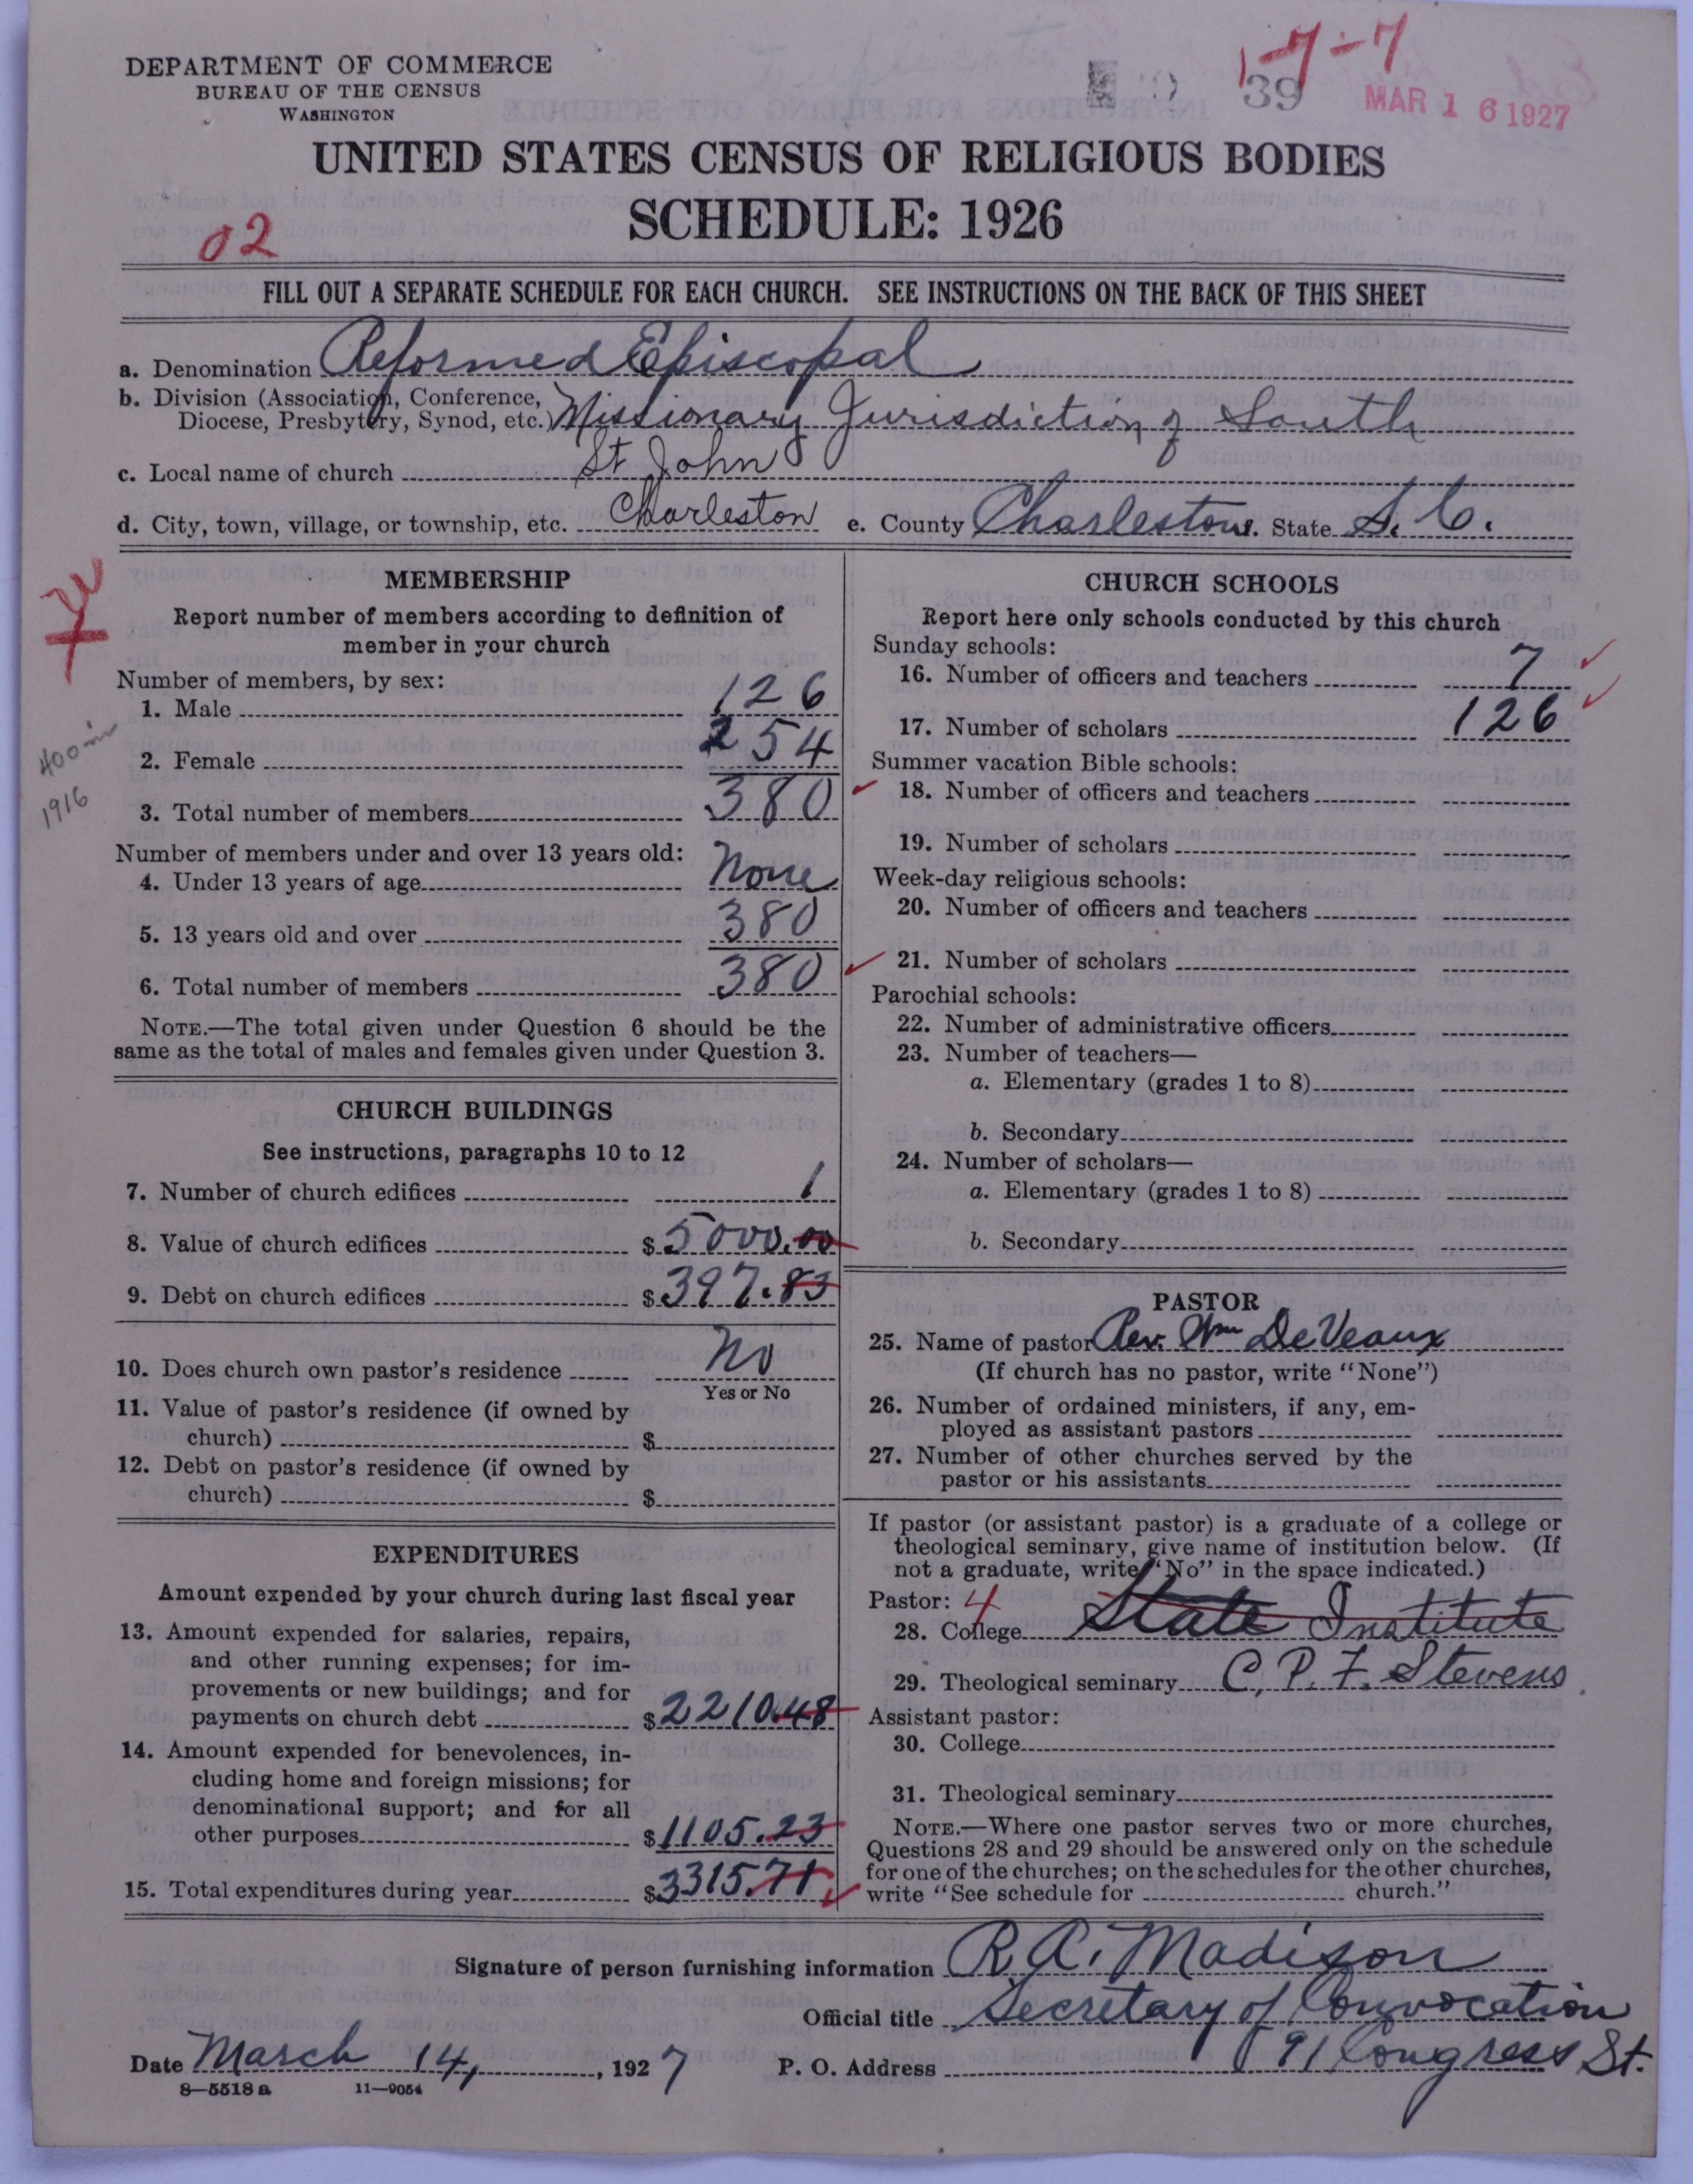 DEPARTMENT OF COMMERCE
BUREAU OF THE CENSUS
WASHINGTON
39
1-7-7
MAR 16 1927
UNITED STATES CENSUS OF RELIGIOUS BODIES
SCHEDULE: 1926
02
FILL OUT A SEPARATE SCHEDULE FOR EACH CHURCH. SEE INSTRUCTIONS ON THE BACK OF THIS SHEET
a. Denomination Reformed Episcopal
b. Division (Association, Conference,
Diocese, Presbytery, Synod, etc.) Missionary Jurisdiction of South
c. Local name of church St John
d. City, town, village, or township, etc. Charleston e. County Charleston f. State S.C.
MEMBERSHIP
Report number of members according to definition of
member in your church
Number of members, by sex:
1. Male 126
2. Female 254
400 in
1916
3. Total number of members 380
Number of members under and over 13 years old:
4. Under 13 years of age None
5. 13 years old and over 380
6. Total number of members 380
NOTE.—The total given under Question 6 should be the
same as the total of males and females given under Question 3.
CHURCH BUILDINGS
See instructions, paragraphs 10 to 12
7. Number of church edifices 1
8. Value of church edifices $5000.00
9. Debt on church edifices $397.83
10. Does church own pastor's residence No
Yes or No
11. Value of pastor's residence (if owned by
church) $
12. Debt on pastor's residence (if owned by
church) $
EXPENDITURES
Amount expended by your church during last fiscal year
13. Amount expended for salaries, repairs,
and other running expenses; for im-
provements or new buildings; and for
payments on church debt $2210.48
14. Amount expended for benevolences, in-
cluding home and foreign missions; for
denominational support; and for all
other purposes $1105.23
15. Total expenditures during year $3315.71
CHURCH SCHOOLS
Report here only schools conducted by this church
Sunday schools:
16. Number of officers and teachers 7
17. Number of scholars 126
Summer vacation Bible schools:
18. Number of officers and teachers
19. Number of scholars
Week-day religious schools:
20. Number of officers and teachers
21. Number of scholars
Parochial schools:
22. Number of administrative officers
23. Number of teachers—
a. Elementary (grades 1 to 8)
b. Secondary
24. Number of scholars—
a. Elementary (grades 1 to 8)
b. Secondary
PASTOR
25. Name of pastor Rev. Wm DeVeaux
(If church has no pastor, write "None")
26. Number of ordained ministers, if any, em-
ployed as assistant pastors
27. Number of other churches served by the
pastor or his assistants
If pastor (or assistant pastor) is a graduate of a college or
theological seminary, give name of institution below. (If
not a graduate, write "No" in the space indicated.)
Pastor: 4
28. College State Institute
29. Theological seminary C. P. F. Stevens
Assistant pastor:
30. College
31. Theological seminary
NOTE.—Where one pastor serves two or more churches,
Questions 28 and 29 should be answered only on the schedule
for one of the churches; on the schedules for the other churches,
write "See schedule for church."
Signature of person furnishing information R. A. Madison
Official title Secretary of Convocation
Date March 14, 1927 P. O. Address 91 Congress St.
8—5518 a 11—9054